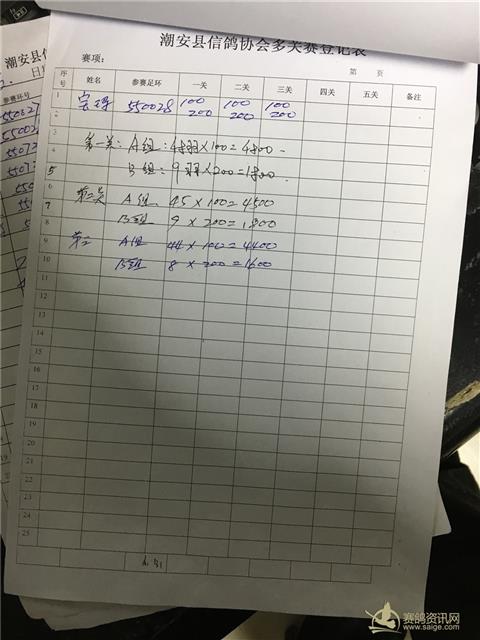 潮安县信鸽协会多关赛登记表
赛项: 第 页
序号 姓名 参赛足环 一关 二关 三关 四关 五关 备注
1 550028 100 100 100
2 200 200 200
3
4 第一关: A组: 48羽×100=4800
5 B组: 9羽×200=1800
6 第二关
7 A组 45×100=4500
8 B组 9×200=1800
9 第二 A组 44×100=4400
10 B组 8×200=1600
11
12
13
14
15
16
17
18
19
20
21
22
23
24
25
赛鸽资讯网
www.saige.com